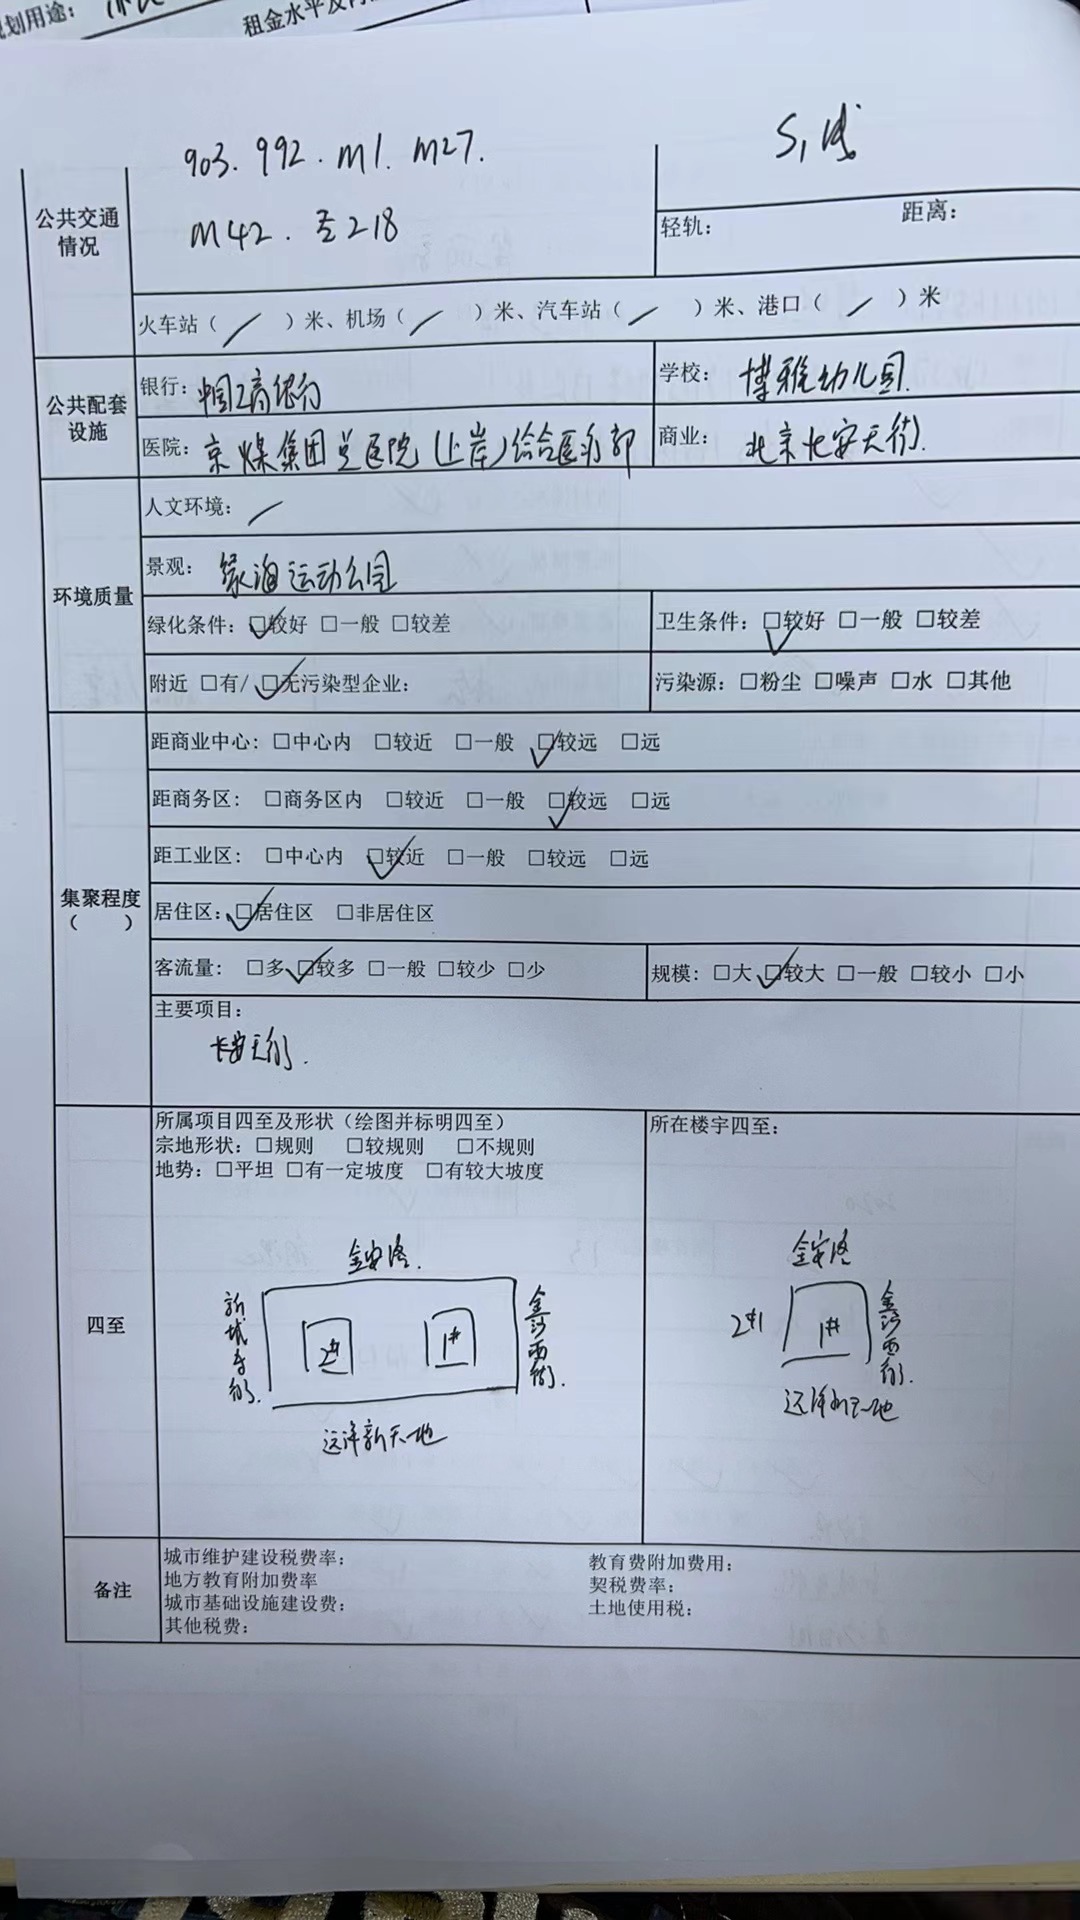 划用途：
租金水平及
903. 992. M1. M27.
M42. 至218
S1线
公共交通情况
轻轨： 距离：
火车站（／）米、机场（／）米、汽车站（／）米、港口（／）米
公共配套设施
银行：中国工商银行
学校：博雅幼儿园.
医院：京煤集团总医院（上岸）综合医疗部
商业：北京长安天街.
环境质量
人文环境：／
景观：绿海运动公园
绿化条件：☑较好 □一般 □较差
卫生条件：☑较好 □一般 □较差
附近 □有/☑无污染型企业：
污染源：□粉尘 □噪声 □水 □其他
集聚程度（ ）
距商业中心：□中心内 □较近 □一般 ☑较远 □远
距商务区：□商务区内 □较近 □一般 ☑较远 □远
距工业区：□中心内 ☑较近 □一般 □较远 □远
居住区：☑居住区 □非居住区
客流量：□多 ☑较多 □一般 □较少 □少
规模：□大 ☑较大 □一般 □较小 □小
主要项目：
长安天街.
四至
所属项目四至及形状（绘图并标明四至）
宗地形状：□规则 □较规则 □不规则
地势：□平坦 □有一定坡度 □有较大坡度
金安路.
新城东街.
2#
1#
金沙西街.
远洋新天地
所在楼宇四至：
金安路
2#
1#
金沙西街.
远洋新天地
备注
城市维护建设税费率：
教育费附加费用：
地方教育附加费率
契税费率：
城市基础设施建设费：
土地使用税：
其他税费：